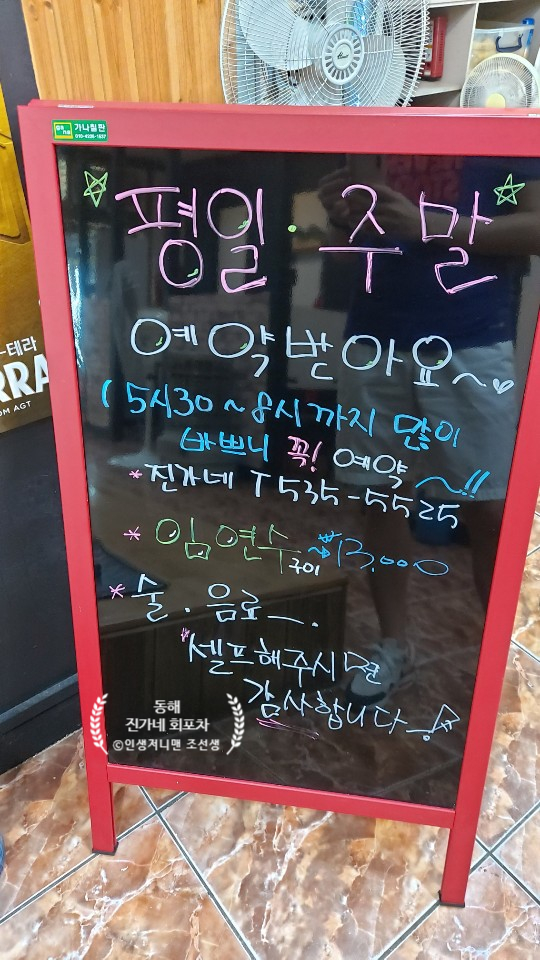 가나칠판
평일·주말
예약받아요~♡
( 5시30~8시까지 많이
바쁘니 꼭! 예약~!!
*진가네 T 535-5525
*임연수구이 ₩13,000
*술·음료ㅡ.
*셀프해주시면
감사합니다~!
-테라
RRA
OM AGT
동해
진가네 회포차
©인생저니맨 조선생